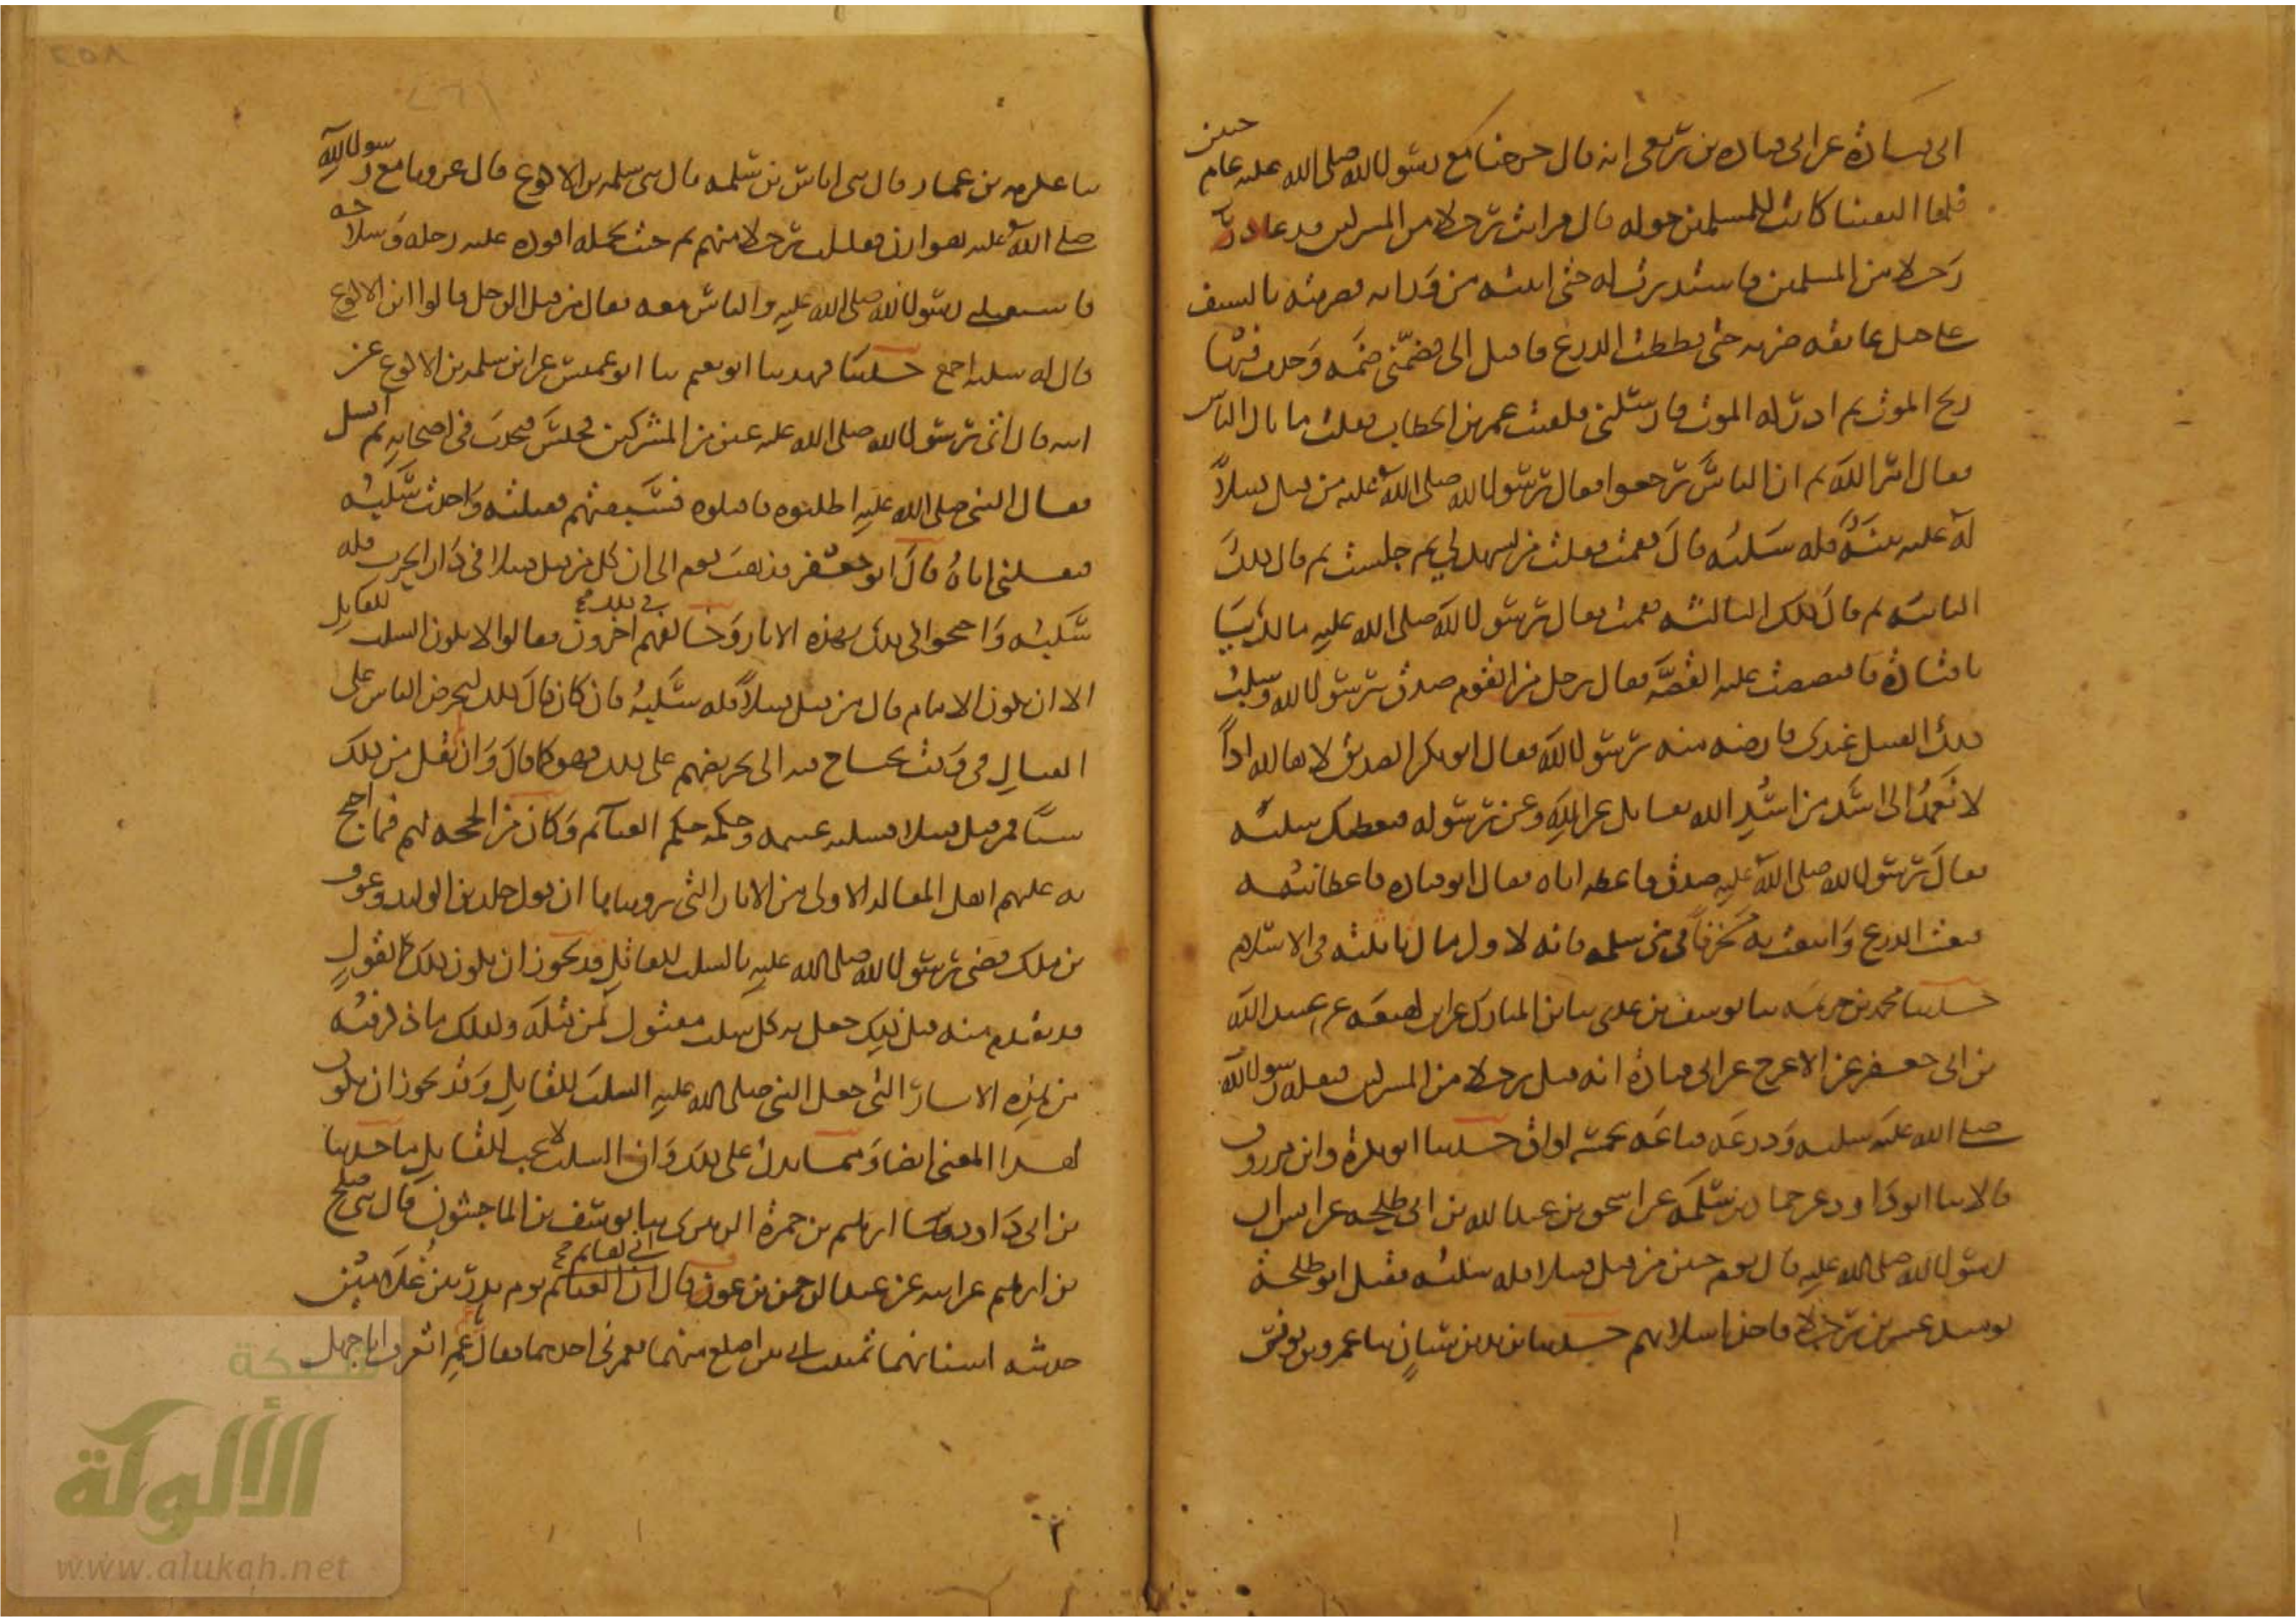 ابى قتادة عن ابى قتادة بن ربعى انه قال خرجنا مع رسول الله صلى الله عليه عام حنين
فلما التقينا كانت للمسلمين جولة قال فرايت رجلا من المشركين قد علا
رجلا من المسلمين فاستدرت له حتى اتيته من ورائه فضربته بالسيف
على حبل عاتقه ضربة حتى قطعت الدرع فاقبل الى فضمنى ضمة وجدت فيها
ريح الموت ثم ادركه الموت فارسلنى فلقيت عمر بن الخطاب فقلت ما بال الناس
فقال امر الله ثم ان الناس رجعوا فقال رسول الله صلى الله عليه من قتل قتيلا
له عليه بينة فله سلبه قال فقمت فقلت من يشهد لى ثم جلست ثم قال ذلك
الثانية ثم قال ذلك الثالثة فقمت فقال رسول الله صلى الله عليه مالك يا با
قتادة فاقتصصت عليه القصة فقال رجل من القوم صدق يرسول الله وسلب
ذلك القتيل عندى فارضه منه يرسول الله فقال ابو بكر الصديق لاها الله اذا
لا نعمد الى اسد من اسد الله يقاتل عن الله وعن رسوله فيعطيك سلبه
فقال رسول الله صلى الله عليه صدق فاعطه اياه فقال ابو قتادة فاعطانيه
فبعت الدرع وابتعت به مخرفا فى بنى سلمة فانه لاول مال تاثلته فى الاسلام
حدثنا محمد بن خزيمة ثنا يوسف بن عدى ثنا بن المبارك عن ابن لهيعة عن عبيد الله
بن ابى جعفر عن الاعرج عن ابى قتادة انه قتل رجلا من المشركين فنفله رسول الله
صلى الله عليه سلبه ودرعه فباعه بخمسة اواق حدثنا ابو بكرة وابن مرزوق
قالا ثنا ابو داود عن حماد بن سلمة عن اسحق بن عبد الله بن ابى طلحة عن انس ان
رسول الله صلى الله عليه قال يوم حنين من قتل قتيلا فله سلبه فقتل ابو طلحة
يومئذ عشرين رجلا فاخذ اسلابهم حدثنا يزيد بن سنان ثنا عمر بن يونس
ثنا عكرمة بن عمار قال ثنى اياس بن سلمة قال ثنى سلمة بن الاكوع قال غزونا مع رسول الله
صلى الله عليه هوازن فقتلت رجلا منهم ثم جئت بجمله اقوده عليه رحله وسلاحه
فاستقبلنى رسول الله صلى الله عليه والناس معه فقال من قتل الرجل قالوا ابن الاكوع
قال له سلبه اجمع حدثنا فهد ثنا ابو نعيم ثنا ابو عميس عن ابن سلمة بن الاكوع عن
ابيه قال اتى رسول الله صلى الله عليه عين من المشركين فجلس فتحدث فى اصحابه ثم انسل
فقال النبى صلى الله عليه اطلبوه فاقتلوه فسبقتهم فقتلته واخذت سلبه
فنفلنى اياه قال ابو جعفر فذهب قوم الى ان كل من قتل قتيلا فى دار الحرب فله
سلبه واحتجوا فى ذلك بهذه الاثار وخالفهم فى ذلك اخرون فقالوا لا يكون السلب للقاتل
الا ان يكون الامام قال من قتل قتيلا فله سلبه فان كان قال ذلك ليحرض الناس على
القتال فى وقت يحتاج فيه الى تحريضهم على ذلك فهو كما قال وان لم يقل من ذلك
شيئا فمن قتل قتيلا فسلبه غنيمة وحكمه حكم الغنائم وكان من الحجة لهم فيما احتج
به عليهم اهل المقالة الاولى من الاثار التى رويناها ان قول خلد بن الوليد وعوف
بن ملك قضى رسول الله صلى الله عليه بالسلب للقاتل قد يجوز ان يكون ذلك لقول
قد تقدم منه قبل ذلك جعل به كل سلب مقتول لمن قتله وكذلك ما ذكر فيه
من هذه الاثار التى جعل النبى صلى الله عليه السلب للقاتل وقد يجوز ان يكون
لهذا المعنى ايضا ومما يدل على ذلك وان السلب لا يجب للقاتل ما حدثنا
بن ابى داود ثنا ابرهيم بن حمزة الزبيرى ثنا يوسف بن الماجشون قال ثنى صلح
بن ابرهيم عن ابيه عن عبد الرحمن بن عوف قال انى لقائم يوم بدر بين غلامين
حديثة اسنانهما تمنيت انى بين اضلع منهما فغمزنى احدهما فقال يا عم اتعرف ابا جهل
شبكة
الألوكة
www.alukah.net